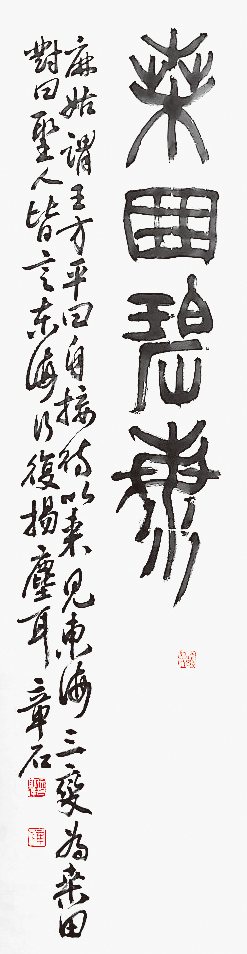 桑田碧海
麻姑謂王方平曰自接待以來見東海三變為桑田
對曰聖人皆言東海行復揚塵耳 章石